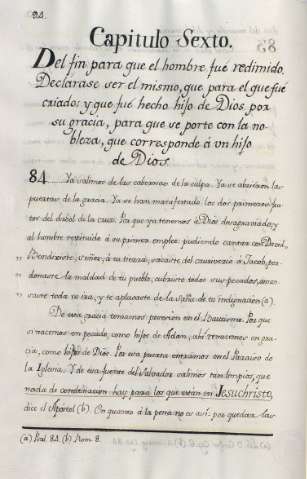 94.
Capitulo Sexto.
Del fin para que el hombre fué redimido.
Declarase ser el mismo, que para el que fué
criado; y que fué hecho hijo de Dios por
su gracia, para que se porte con la no-
bleza, que corresponde á vn hijo
de Dios.
84 Ya salimos de las cabernas de la culpa. Ya se abrieron las
puertas de la gracia. Ya se han manifestado los dos primeros
del arbol de la cruz. Ya que ya tenemos á Dios desagraviado, y
al hombre restituido á su primer empleo: pudiendo cantar con David,
Bendixiste, señor, á tu tierra; sacaste del cautiverio á Jacob, per-
donaste la maldad de tu pueblo, cubriste todos sus pecados, amen-
saste toda tu ira, y te aplacaste de la saña de tu indignacion (a).
De esta gracia tomamos posesion en el Bautismo. Por que
si nacemos en pecado, como hijos de Adam, alli renacemos en gra-
cia, como hijos de Dios. Por esta puerta entramos en el Paraiso de
la Iglesia. Y de esta fuente del Salvador salimos tan limpios, que
nada de condenacion hay para los que estan en Jesuchristo,
dice el Apostol (b). En quanto á la pena no es asi: por quedar las
(a) Psal. 84. (b) Rom. 8.